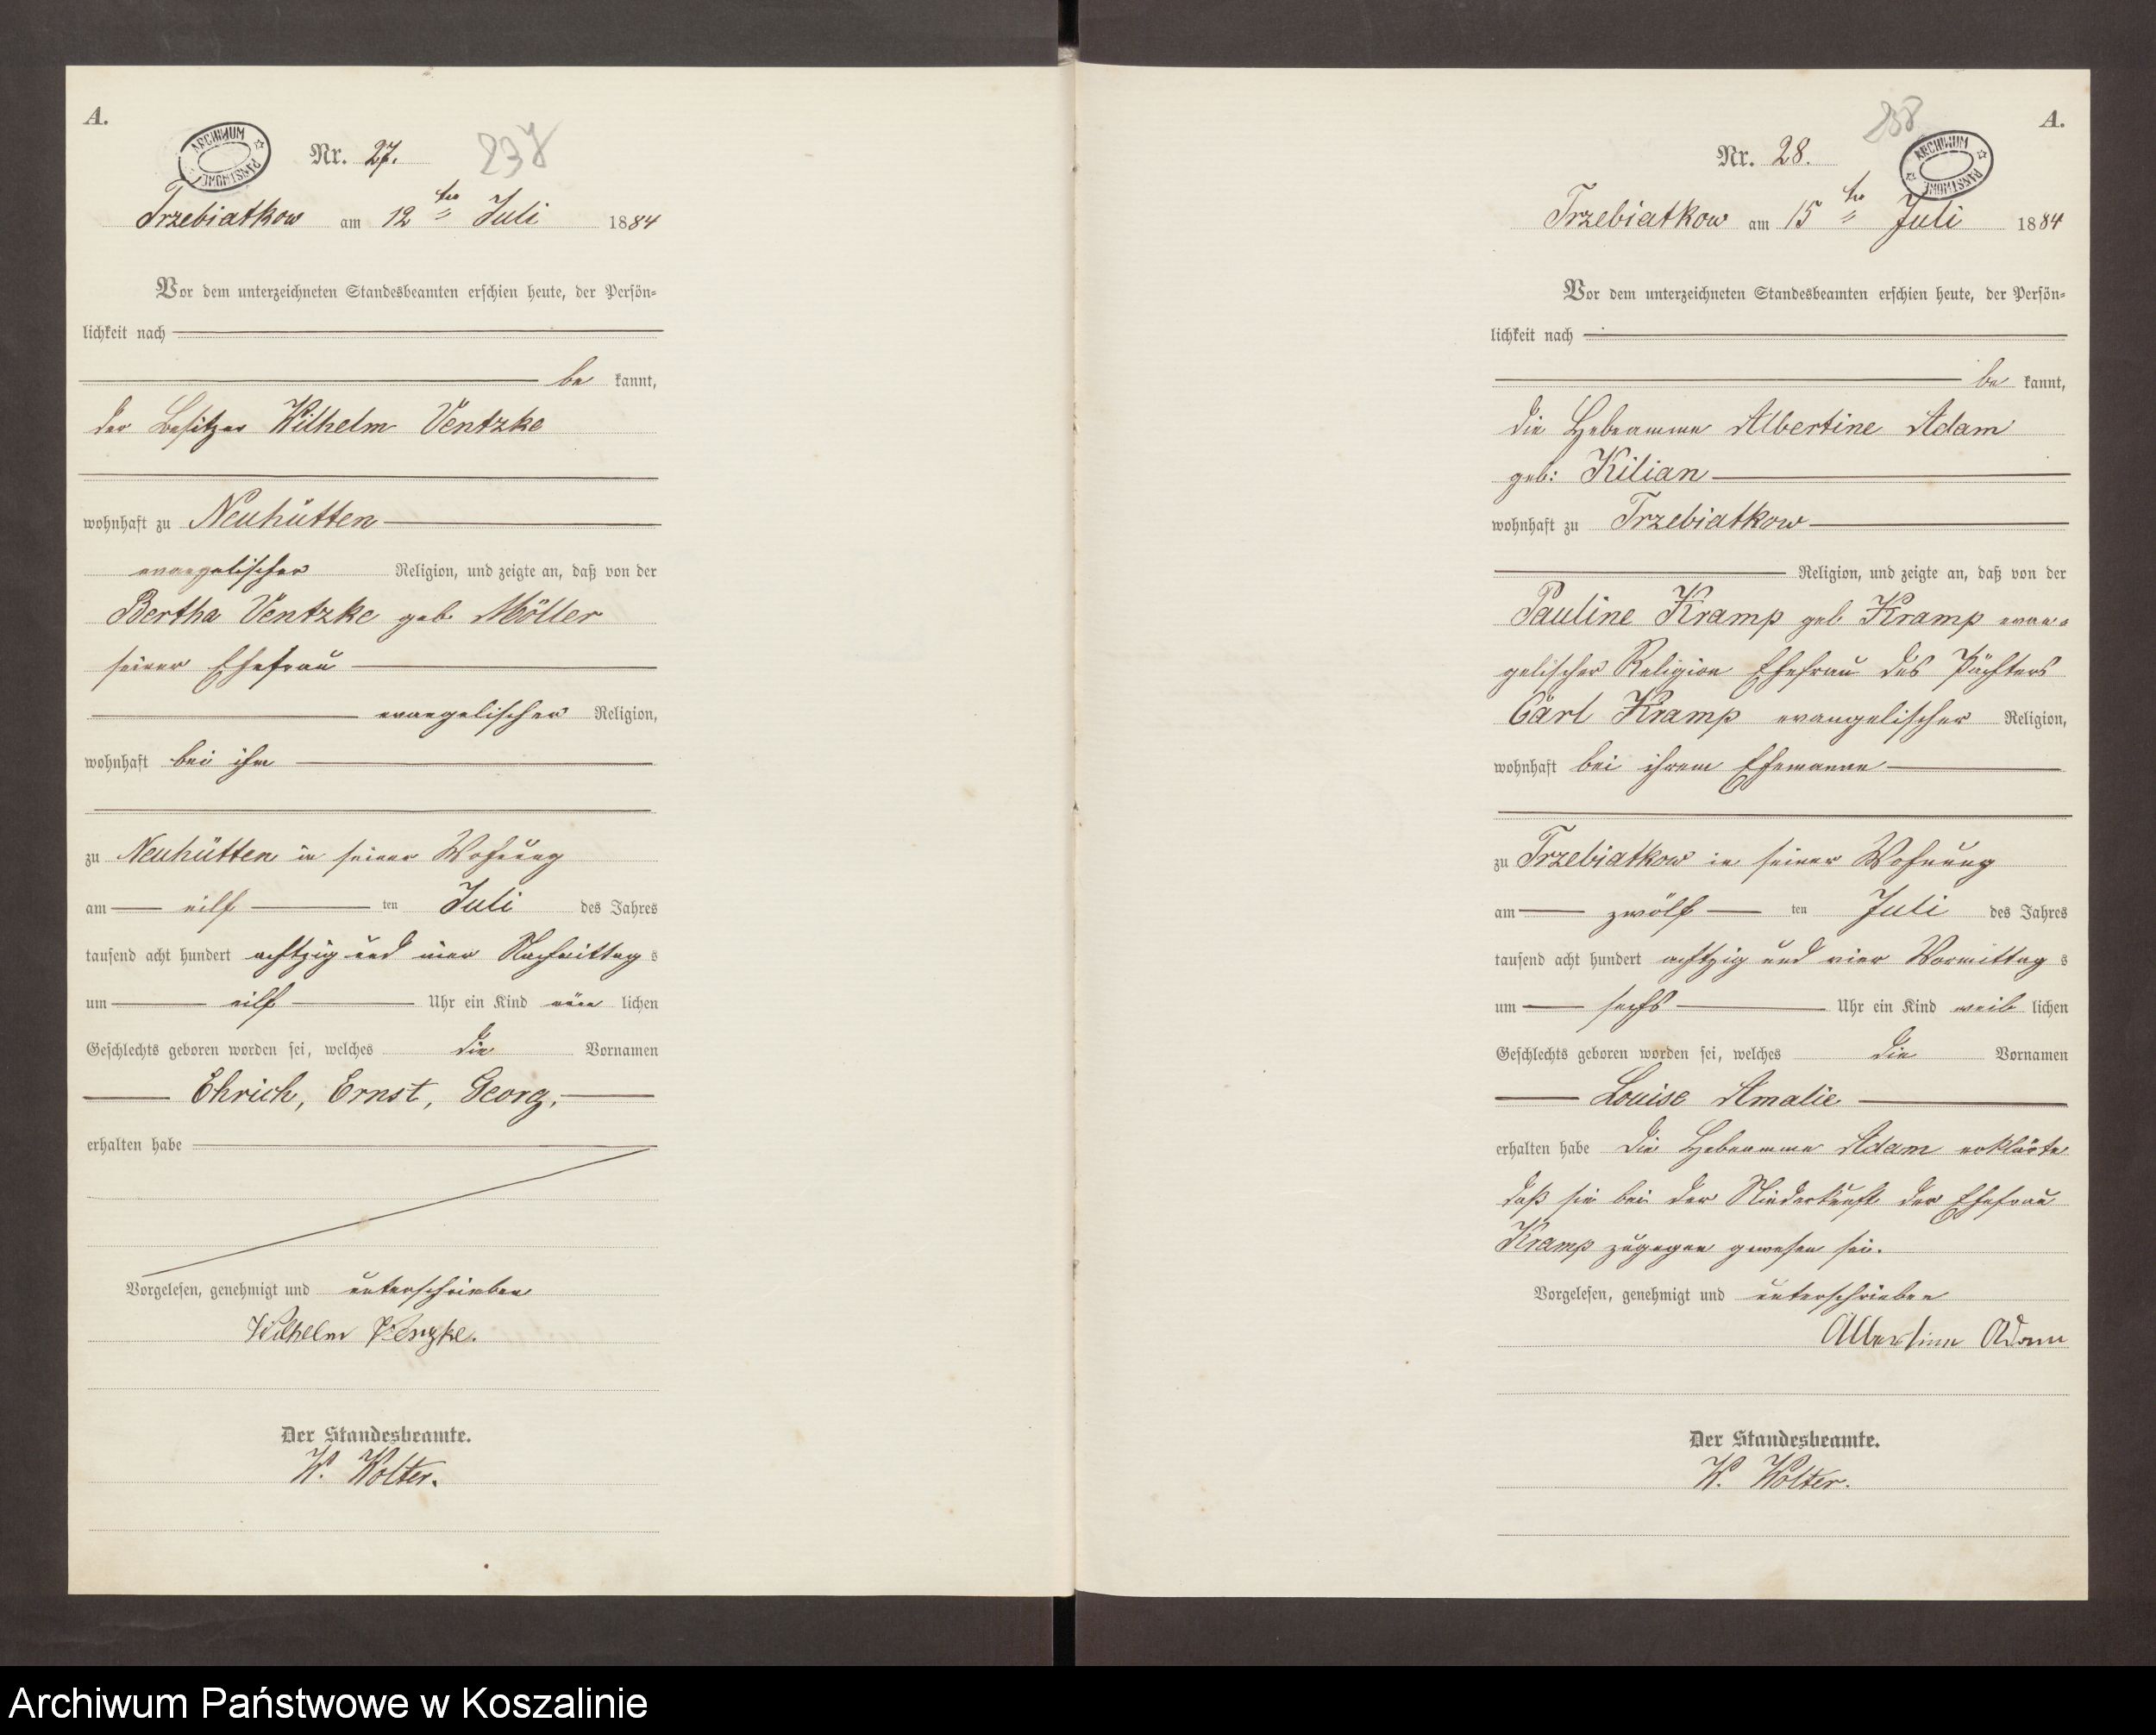 A.
ARCHIWUM PAŃSTWOWE
Nr. 27.
237
Trzebiatkow am 12ten Juli 1884
Vor dem unterzeichneten Standesbeamten erschien heute, der Persön-
lichkeit nach
be kannt,
der Besitzer Wilhelm Ventzke
wohnhaft zu Neuhütten
evangelischer Religion, und zeigte an, daß von der
Bertha Ventzke geb. Möller
seiner Ehefrau
evangelischer Religion,
wohnhaft bei ihm
zu Neuhütten in seiner Wohnung
am eilf ten Juli des Jahres
tausend acht hundert achtzig und vier Nachmittag s
um eilf Uhr ein Kind män lichen
Geschlechts geboren worden sei, welches die Vornamen
Ehrich, Ernst, Georg,
erhalten habe
Vorgelesen, genehmigt und unterschrieben
Wilhelm Venzke.
Der Standesbeamte.
W. Wolter.
A.
238
ARCHIWUM PAŃSTWOWE
Nr. 28.
Trzebiatkow am 15ten Juli 1884
Vor dem unterzeichneten Standesbeamten erschien heute, der Persön-
lichkeit nach
be kannt,
die Hebeamme Albertine Adam
geb: Kilian
wohnhaft zu Trzebiatkow
Religion, und zeigte an, daß von der
Pauline Kramp geb Kramp evan-
gelischer Religion Ehefrau des Pächters
Carl Kramp evangelischer Religion,
wohnhaft bei ihrem Ehemanne
zu Trzebiatkow in seiner Wohnung
am zwölf ten Juli des Jahres
tausend acht hundert achtzig und vier Vormittag s
um sechs Uhr ein Kind weib lichen
Geschlechts geboren worden sei, welches die Vornamen
Louise Amalie
erhalten habe Die Hebeamme Adam erklärte
daß sie bei der Niederkunft der Ehefrau
Kramp zugegen gewesen sei.
Vorgelesen, genehmigt und unterschrieben
Albertine Adam
Der Standesbeamte.
W. Wolter.
Archiwum Państwowe w Koszalinie